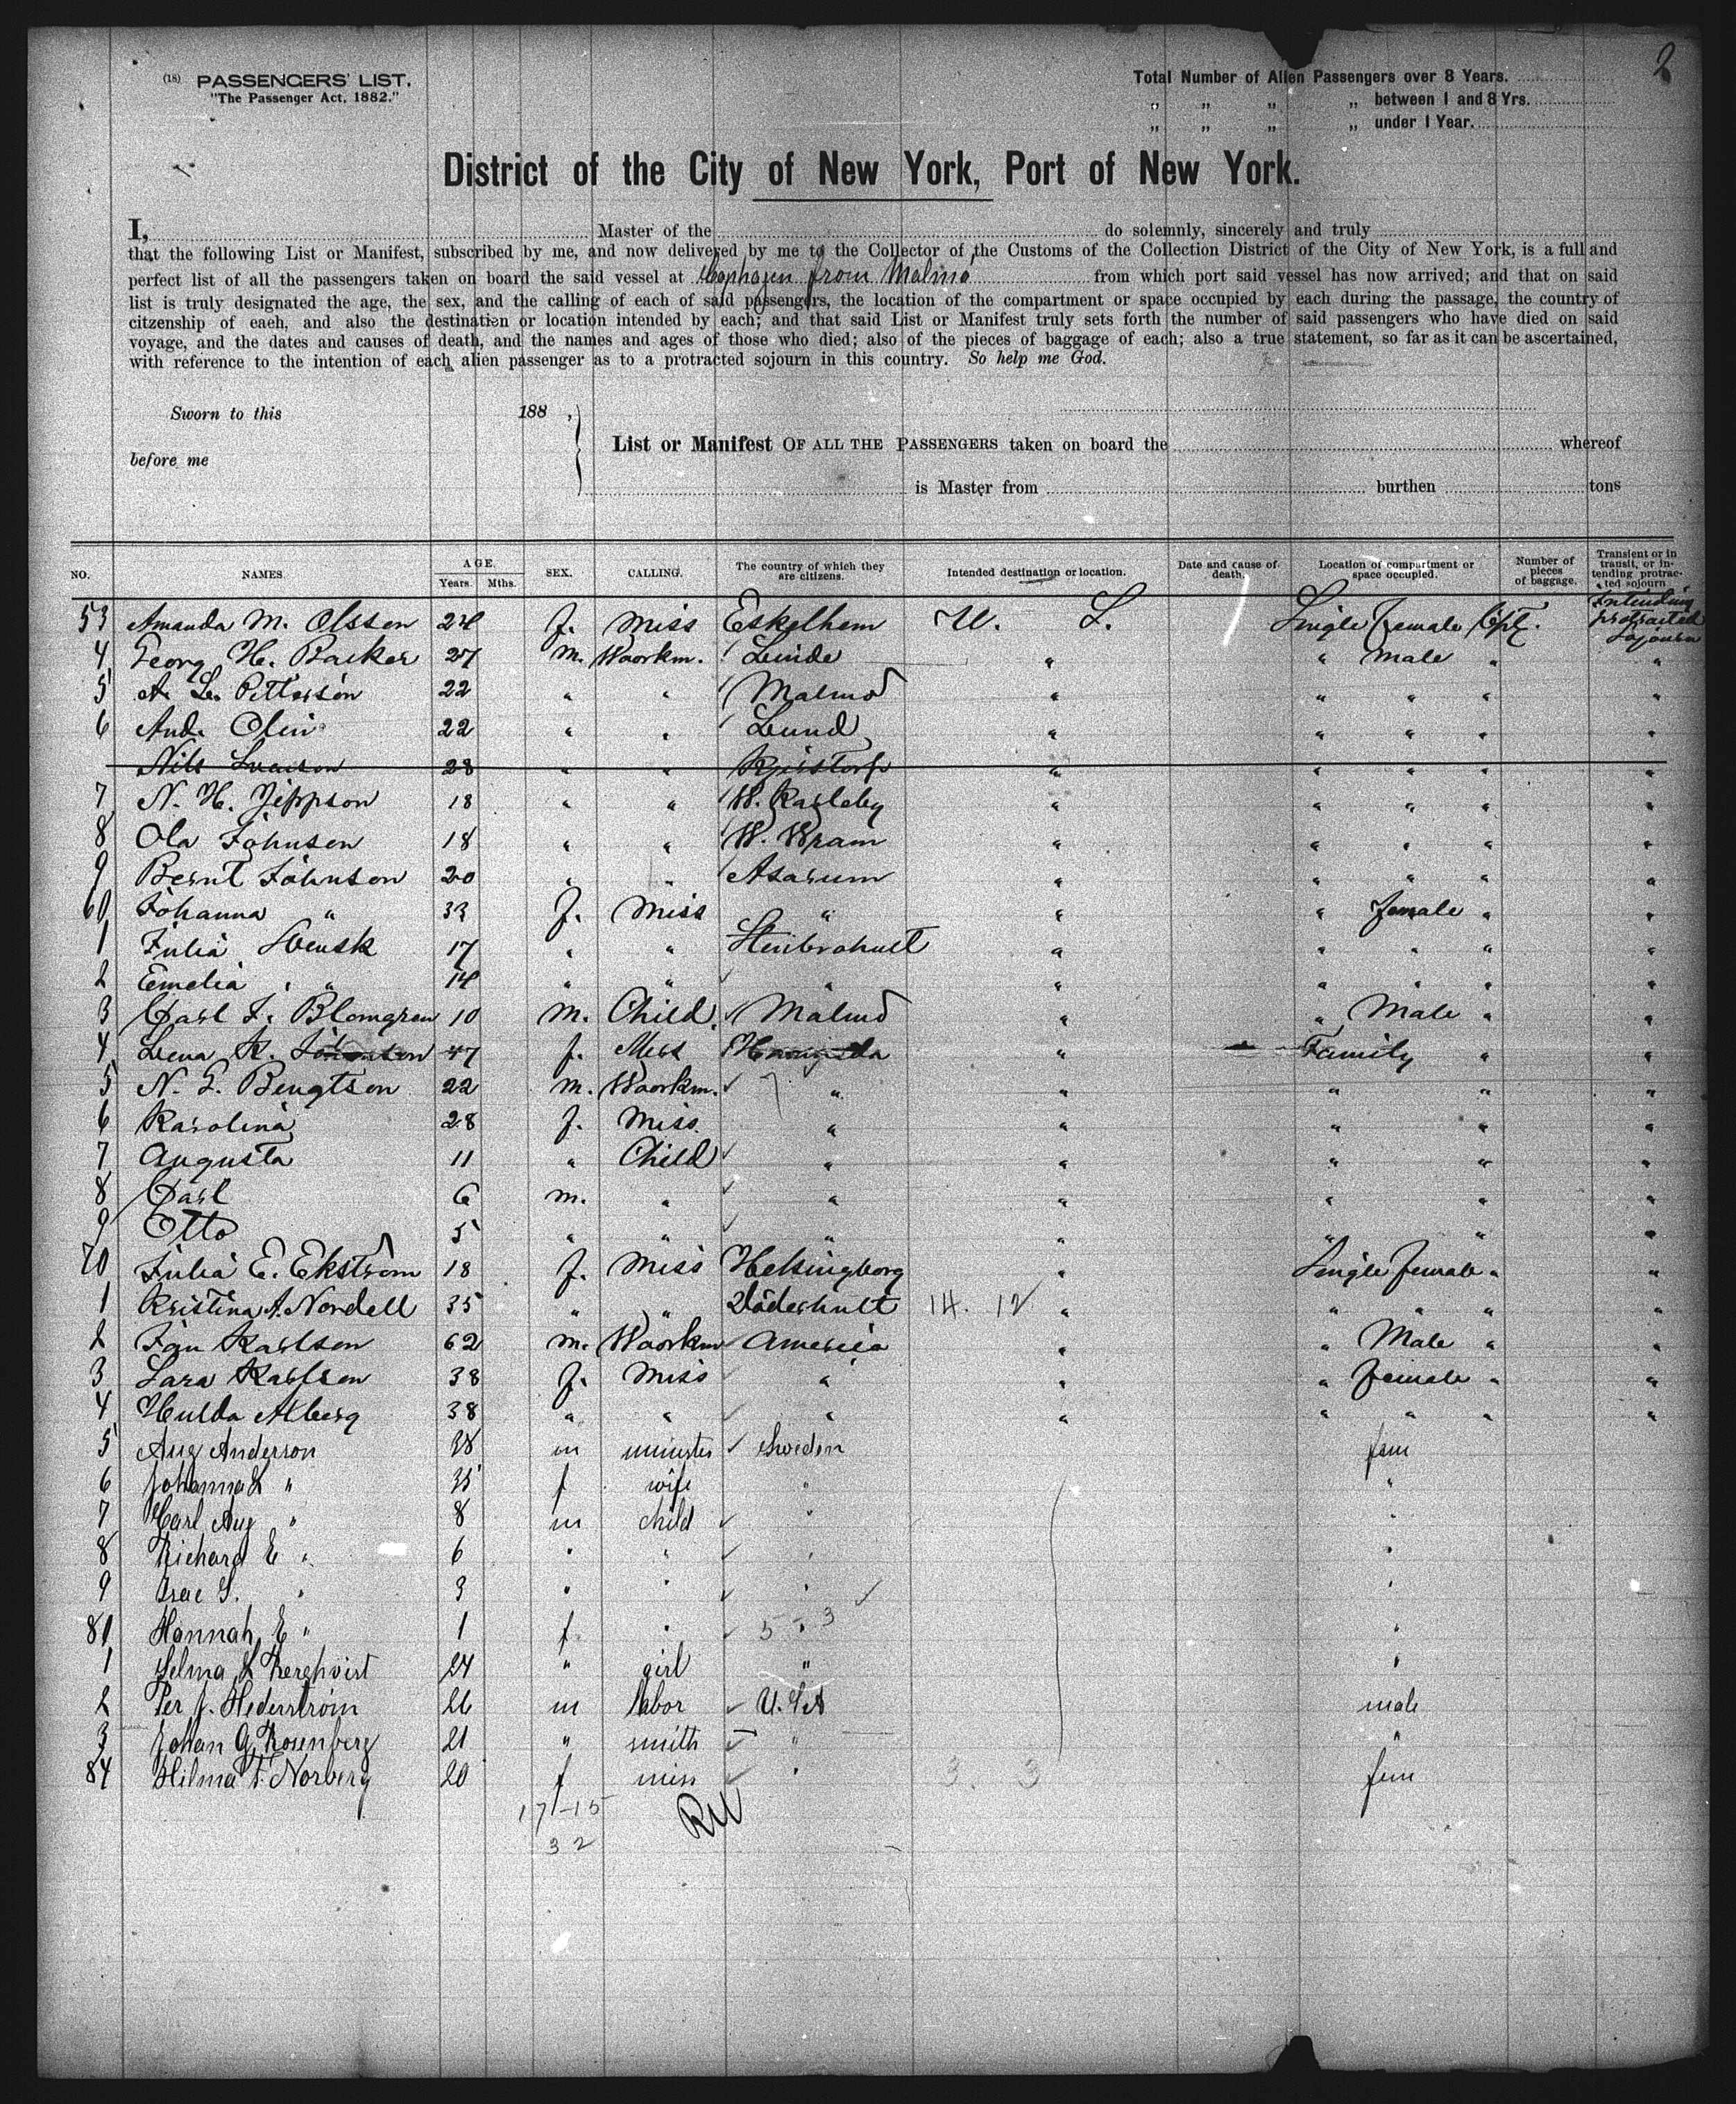 2
(18) PASSENGERS' LIST.
"The Passenger Act, 1882."
Total Number of Alien Passengers over 8 Years.
„ „ „ „ between 1 and 8 Yrs.
„ „ „ „ under 1 Year.
District of the City of New York, Port of New York.
I, Master of the do solemnly, sincerely and truly
that the following List or Manifest, subscribed by me, and now delivered by me to the Collector of the Customs of the Collection District of the City of New York, is a full and
perfect list of all the passengers taken on board the said vessel at Cophagen from Malmö from which port said vessel has now arrived; and that on said
list is truly designated the age, the sex, and the calling of each of said passengers, the location of the compartment or space occupied by each during the passage, the country of
citzenship of eaeh, and also the destination or location intended by each; and that said List or Manifest truly sets forth the number of said passengers who have died on said
voyage, and the dates and causes of death, and the names and ages of those who died; also of the pieces of baggage of each; also a true statement, so far as it can be ascertained,
with reference to the intention of each alien passenger as to a protracted sojourn in this country. So help me God.
Sworn to this 188 ,
before me
List or Manifest OF ALL THE PASSENGERS taken on board the whereof
is Master from burthen tons
NO. NAMES AGE. Years. Mths. SEX. CALLING. The country of which they are citizens. Intended destination or location. Date and cause of death. Location of compartment or space occupied. Number of pieces of baggage. Transient or in transit, or intending protracted sojourn
53 Amanda M. Olsson 24 f. Miss Eskelhem U. S. Single Female Cpt. Intending protracted Sojourn
4 Georg H. Backer 27 m. Woorkm. Linde " " Male " "
5 A. L. Petterson 22 " " Malmö " " " " "
6 And. Olin 22 " " Lund " " " " "
Nils 28 " " " " " " "
7 N. H. Jeppson 18 " " W. Karleby " " " " "
8 Ola Johnson 18 " " W. Wram " " " " "
9 Bernt Johnson 20 " " Asarum " " " " "
60 Johanna " 33 f. Miss " " " female " "
1 Julia Svensk 17 " " Stenbrohult " " " " "
2 Emelia " 14 " " " " " " " "
3 Carl J. Blomgren 10 m. Child Malmö " " Male " "
4 Lena K. 47 f. " Family " "
5 N. L. Bengtson 22 m. Woorkm. " " " " "
6 Karolina 28 f. Miss " " " " "
7 Augusta 11 " Child " " " " "
8 Carl 6 m. " " " " " "
9 Otto 5 " " " " " " "
70 Julia E. Ekström 18 f. Miss Helsingborg " Single female " "
1 Kristina A. Nordell 35 " " Döderhult 14. 12 " " " " "
2 Jan Karlson 62 m. Woorkm America " " Male " "
3 Sara Karlson 38 f. Miss " " " Female " "
4 Hulda Alberg 38 " " " " " " " "
5 Aug Anderson 38 m minister Sweden fam
6 Johanna " 35 f wife " "
7 Carl Aug " 8 m child " "
8 Richard E " 6 " " " "
9 Isac G. " 3 " " " "
80 Hannah E " 1 f " 5 - 3 "
1 Selma 24 " girl " "
2 Per J. Hederström 26 m labor U. Sts male
3 Johan G Rosenberg 21 " smith " "
84 Hilma F. Norberg 20 f miss " 3. 3 fem
17-15
32